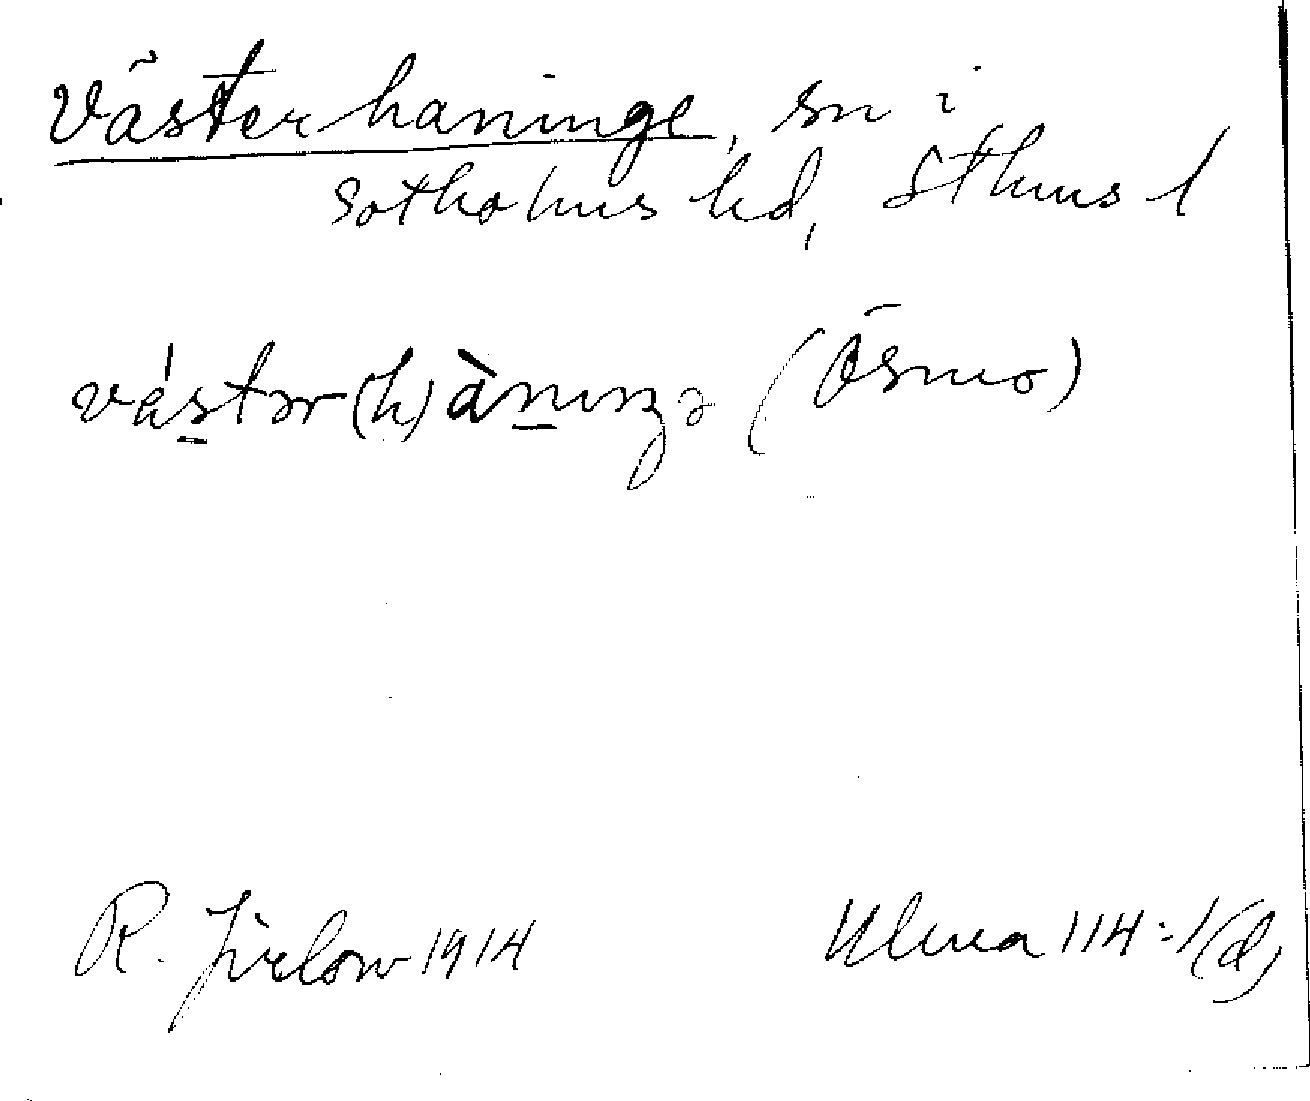 Västerhaninge, sn i
Sotholms hd, Sthms l
vástər(h)àniŋə (Ösmo)
R. Jirlow 1914 Ulma 114:1(d)